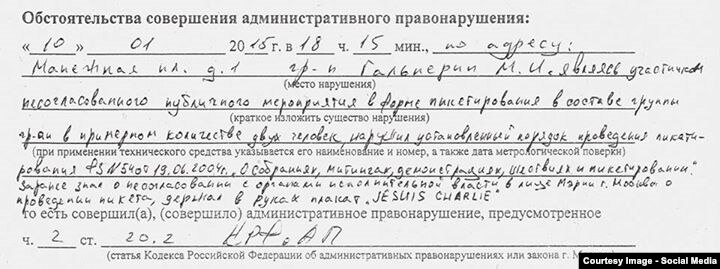 Обстоятельства совершения административного правонарушения:
« 10 » 01 2015 г. в 18 ч. 15 мин., по адресу:
Манежная пл. д. 1 гр-н Гальперин М.И. являясь участником
(место нарушения)
несогласованного публичного мероприятия в форме пикетирования в составе группы
(краткое изложить существо нарушения)
гр-ан в примерном количестве двух человек, нарушил установленный порядок проведения пикети-
(при применении технического средства указывается его наименование и номер, а также дата метрологической поверки)
рования ФЗ №54 от 19.06.2004г. „О Собраниях, митингах, демонстрациях, шествиях и пикетировании."
Заранее зная о несогласовании с органами исполнительной власти в лице Мэрии г. Москва о
проведении пикета, держал в руках плакат „JESUIS CHARLIE"
то есть совершил(а), (совершило) административное правонарушение, предусмотренное
ч. 2 ст. 20.2 КРФоАП
(статья Кодекса Российской Федерации об административных правонарушениях или закона г.
Courtesy Image - Social Media